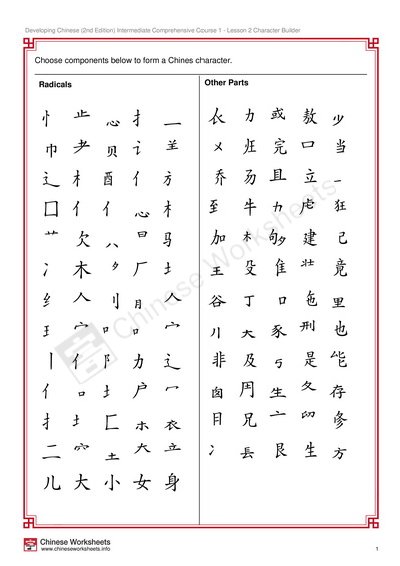 Developing Chinese (2nd Edition) Intermediate Comprehensive Course 1 - Lesson 2 Character Builder
Choose components below to form a Chines character.
Radicals
忄 龷 心 扌 一
巾 耂 贝 讠 羊
辶 木 酉 亻 方
囗 亻 亻 心 木
艹 欠 八 日 马
冫 木 厂 土
纟 人 刂 月 人
王 宀 口 宀
丨 亻 阝 力 辶
亻 口 土 户 冖
扌 土 匚 木 衣
二 土 立
儿 大 小 女 身
Other Parts
衣 力 或 敖 少
完 口 当
乔 且 立
至 牛 力 狂
加 木 建 己
王 殳 隹 竟
谷 丁 口 里
大 豕 刑 也
非 及 是
囱 周 生 夂 存
日 兄 亠 修
冫 艮 生 方
Chinese Worksheets
Chinese Worksheets
www.chineseworksheets.info
1